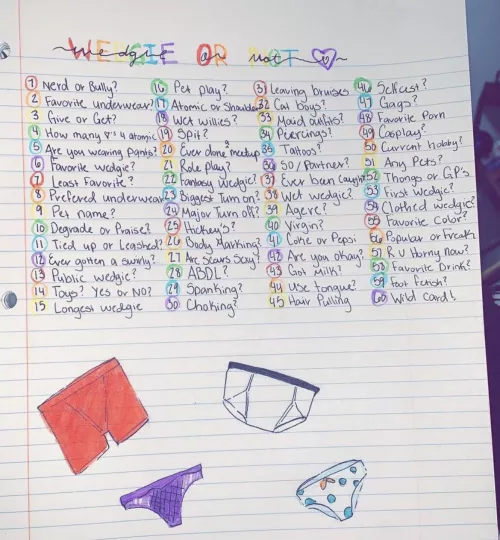 ~WEDGIE OR NOT~
~wedgie or not~
1 Nerd or Bully?
2 Favorite underwear?
3 Give or Get?
4 How many
5 Are you wearing pants?
6 Favorite wedgie?
7 Least Favorite?
8 Preferred underwear
9 Pet name?
10 Degrade or Praise?
11 Tied up or Leashed?
12 Ever gotten a swirly?
13 Public wedgie?
14 Toys? Yes or No?
15 Longest wedgie
16 Pet play?
17 Atomic or Shoulder
18 Wet willies?
19 Spit?
20 Ever done a meetup
21 Role Play?
22 Fantasy wedgie?
23 Biggest Turn on?
24 Major Turn off?
25 Hickey's?
26 Body Marking?
27 Are Scars Sexy?
28 ABDL?
29 Spanking?
30 Choking?
31 Leaving bruises
32 Cat boys?
33 Maid outfits?
34 Peircings?
35 Tattoo?
36 SO/Partner?
37 Ever been caught
38 Wet wedgie?
39 Agere?
40 Virgin?
41 Coke or Pepsi
42 Are you okay?
43 Got Milk?
44 Use tongue?
45 Hair Pulling
46 Selfcest?
47 Gags?
48 Favorite Porn
49 Cosplay?
50 Current hobby?
51 Any Pets?
52 Thongs or GP's
53 First Wedgie?
54 Clothed wedgie?
55 Favorite Color?
56 Popular or Freak
57 R u Horny now?
58 Favorite Drink?
59 Foot Fetish?
60 Wild Card!